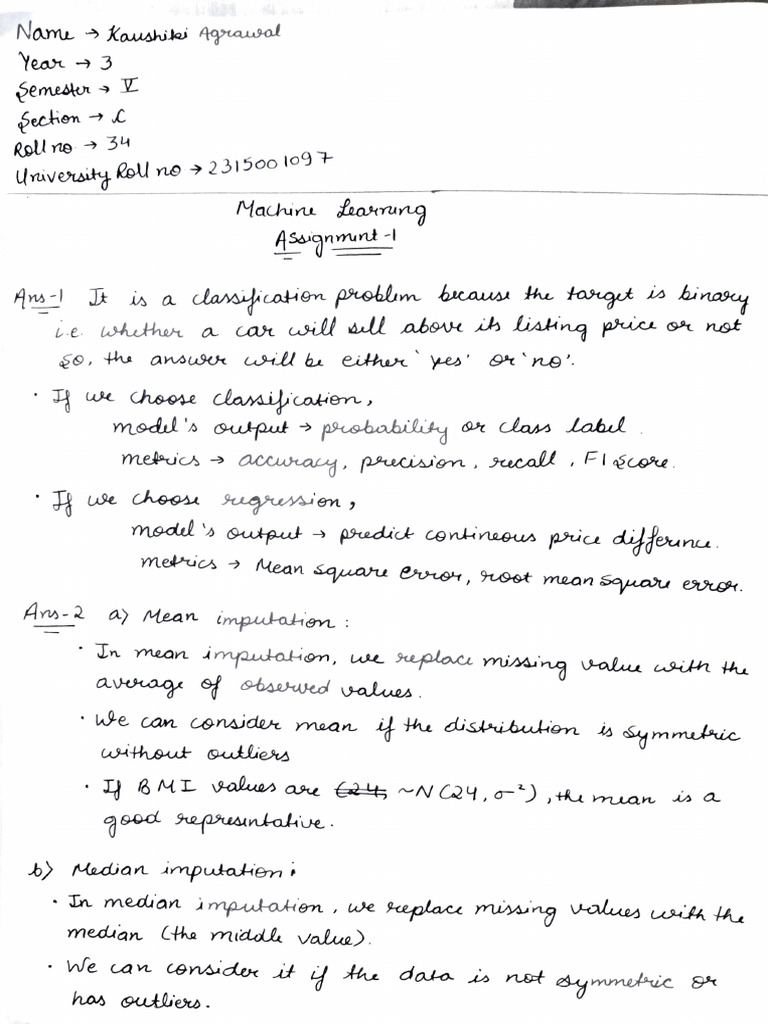 Name → Kaushiki Agrawal
Year → 3
Semester → V
Section → C
Roll no → 34
University Roll no → 2315001097
Machine Learning
Assignment-1
Ans-1 It is a classification problem because the target is binary
i.e. whether a car will sell above its listing price or not
So, the answer will be either 'yes' or 'no'.
· If we choose classification,
model's output → probability or class label.
metrics → accuracy, precision, recall, F1 score.
· If we choose regression,
model's output → predict contineous price difference.
metrics → Mean square error, root mean square error.
Ans-2 a) Mean imputation:
· In mean imputation, we replace missing value with the
average of observed values.
· We can consider mean if the distribution is symmetric
without outliers
· If BMI values are (24, ~N(24, σ²), the mean is a
good representative.
b) Median imputation:
· In median imputation, we replace missing values with the
median (the middle value).
· We can consider it if the data is not symmetric or
has outliers.